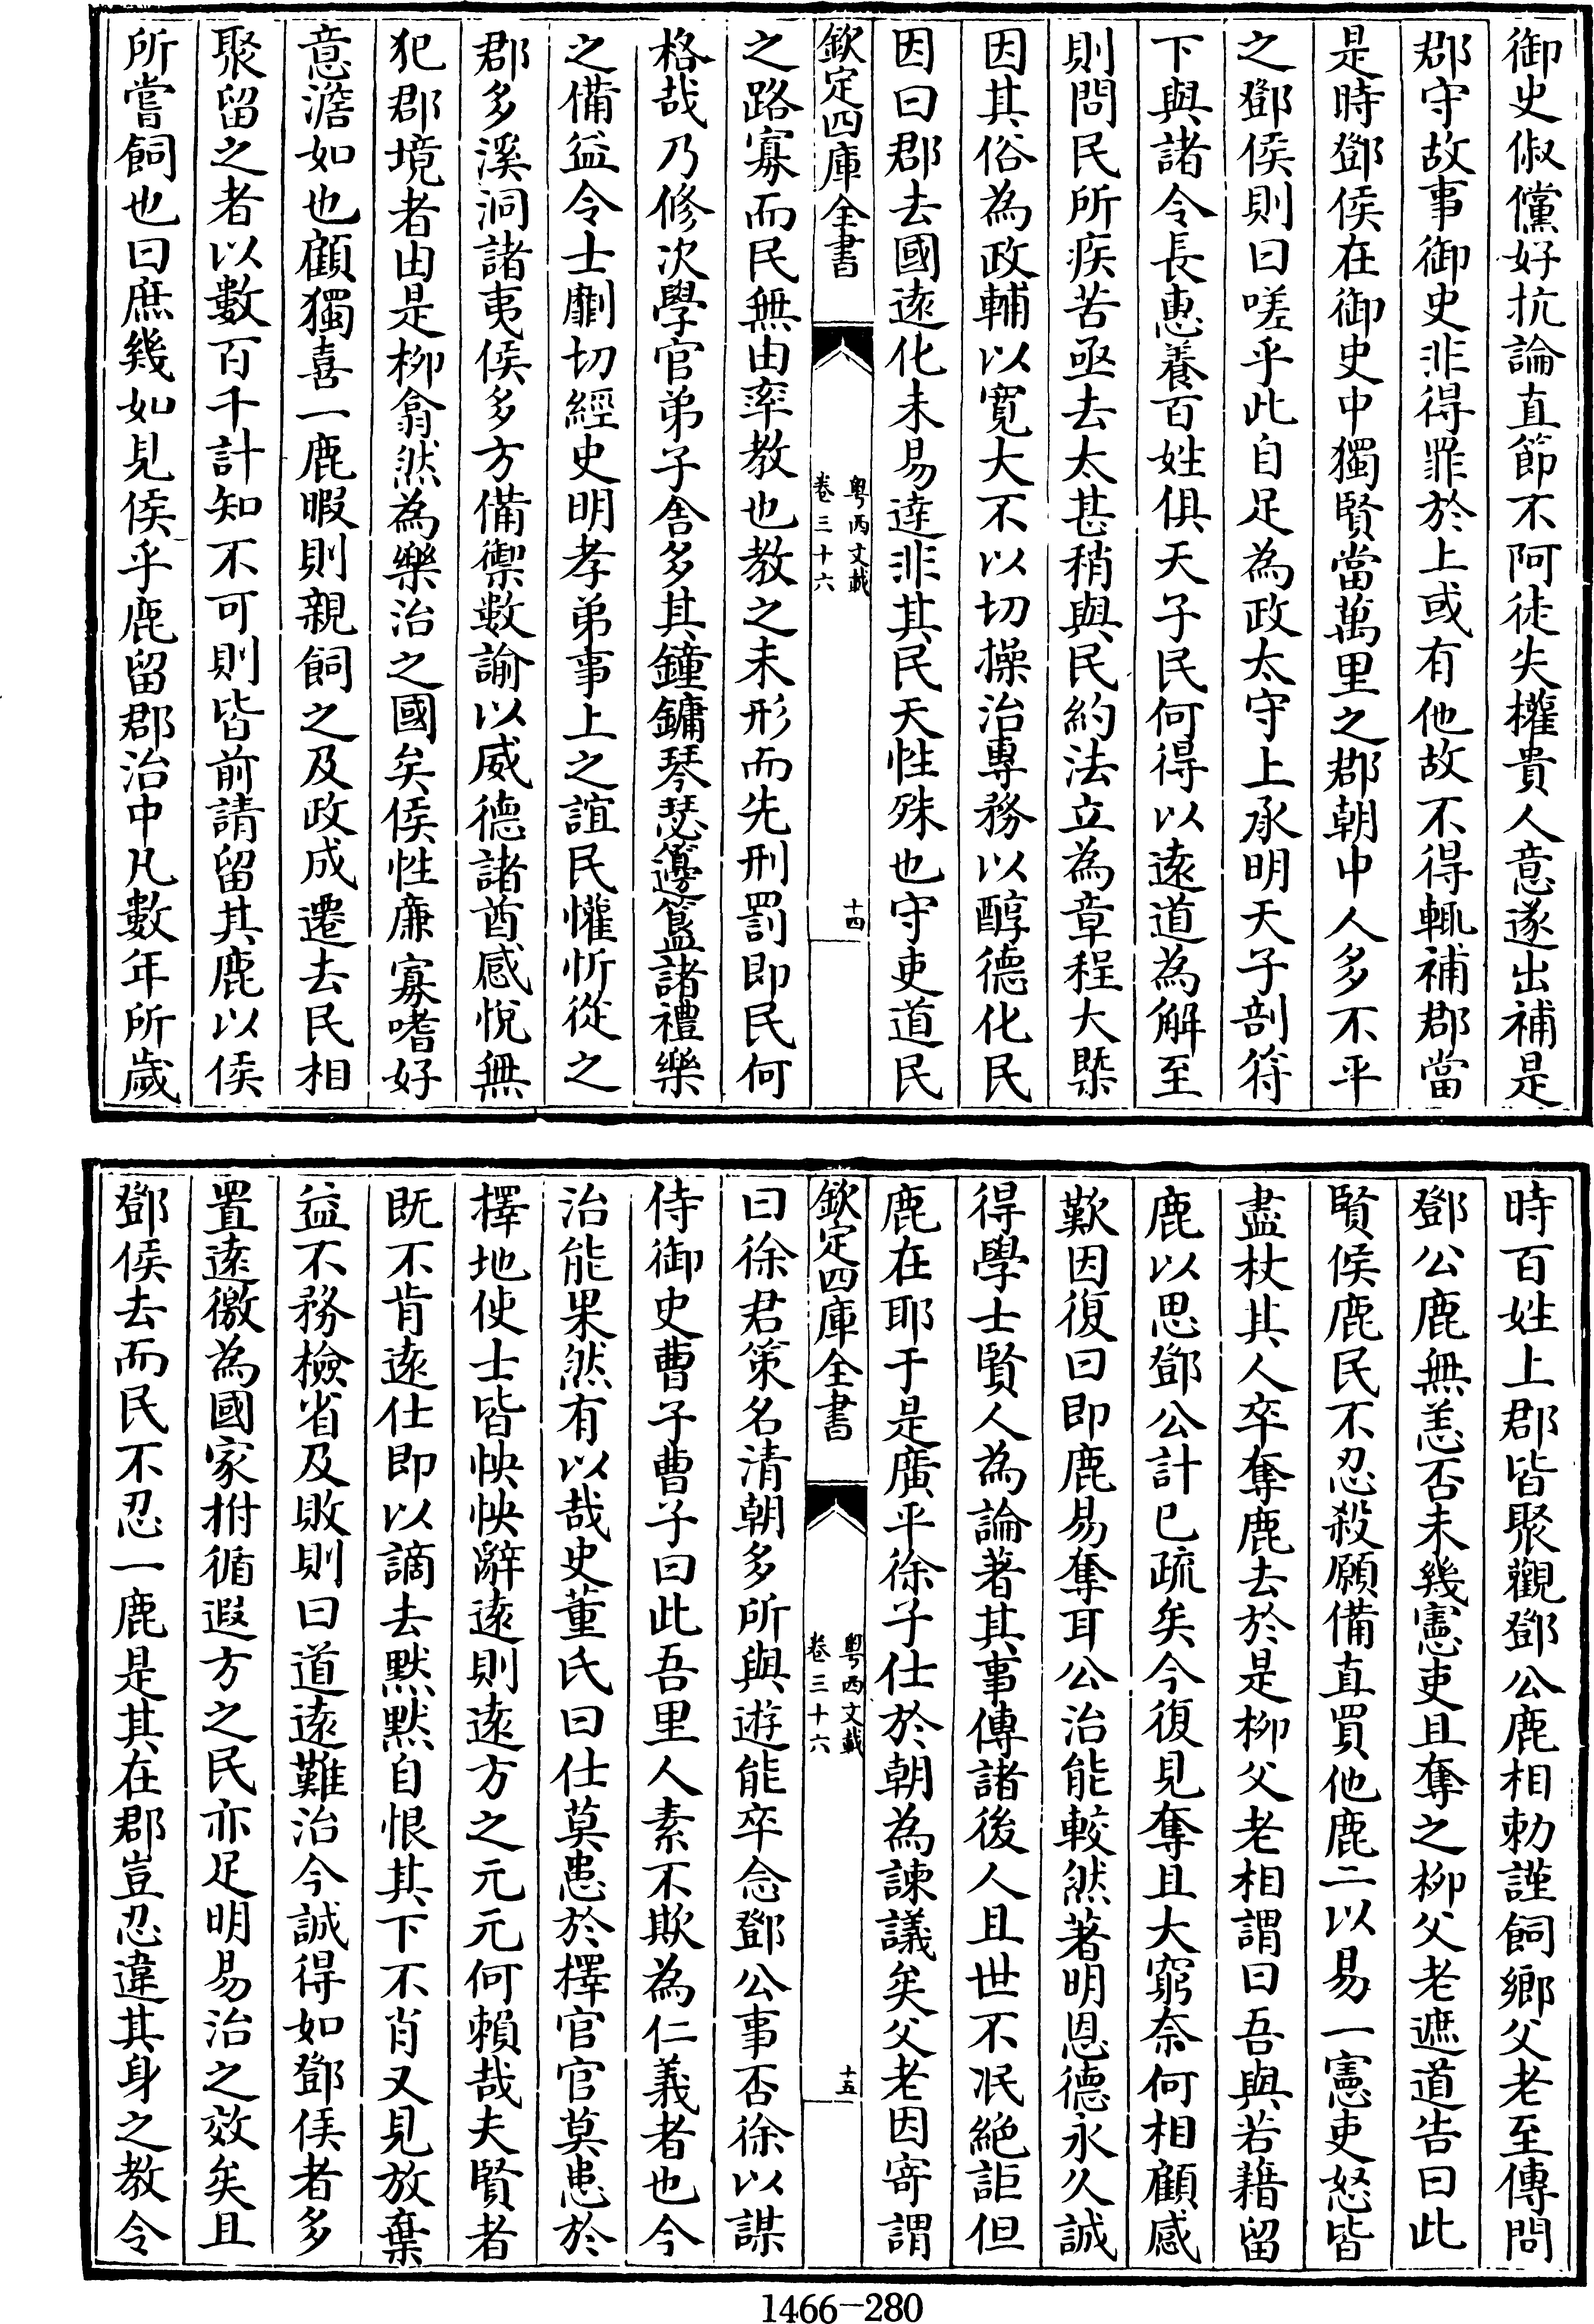 御史俶儻好抗論直節不阿徒失權貴人意遂出補是
郡守故事御史非得罪於上或有他故不得輒補郡當
是時鄧侯在御史中獨賢當萬里之郡朝中人多不平
之鄧侯則曰嗟乎此自足為政太守上承明天子剖符
下與諸令長惠養百姓俱天子民何得以遠道為解至
則問民所疾苦亟去太甚稍與民約法立為章程大槩
因其俗為政輔以寛大不以切操治專務以醇德化民
因曰郡去國遠化未易逹非其民天性殊也守吏道民
欽定四庫全書
粤西文載
卷三十六
十四
之路寡而民無由率教也教之未形而先刑罰即民何
格哉乃修次學官弟子舍多其鐘鏞琴瑟籩簋諸禮樂
之備益令士劘切經史明孝弟事上之誼民懽忻從之
郡多溪洞諸夷侯多方備禦數諭以威德諸酋感悅無
犯郡境者由是柳翕然為樂治之國矣侯性亷寡嗜好
意澹如也顧獨喜一鹿暇則親飼之及政成遷去民相
聚留之者以數百千計知不可則皆前請留其鹿以侯
所嘗飼也曰庶幾如見侯乎鹿留郡治中凡數年所歲
時百姓上郡皆聚觀鄧公鹿相勅謹飼鄉父老至傳問
鄧公鹿無恙否未幾憲吏且奪之柳父老遮道告曰此
賢侯鹿民不忍殺願備直買他鹿二以易一憲吏怒皆
盡杖其人卒奪鹿去於是柳父老相謂曰吾與若藉留
鹿以思鄧公計已疏矣今復見奪且大窮奈何相顧感
歎因復曰即鹿易奪耳公治能較然著明恩德永久誠
得學士賢人為論著其事傳諸後人且世不泯絶詎但
鹿在耶于是廣平徐子仕於朝為諫議矣父老因寄謂
欽定四庫全書
粤西文載
卷三十六
十五
曰徐君策名清朝多所與遊能卒念鄧公事否徐以謀
侍御史曹子曹子曰此吾里人素不欺為仁義者也今
治能果然有以哉史董氏曰仕莫患於擇官官莫患於
擇地使士皆怏怏辭遠則遠方之元元何賴哉夫賢者
既不肯遠仕即以謫去黙黙自恨其下不肖又見放棄
益不務檢省及敗則曰道遠難治今誠得如鄧侯者多
置遠徼為國家拊循遐方之民亦足明易治之效矣且
鄧侯去而民不忍一鹿是其在郡豈忍違其身之教令
1466-280